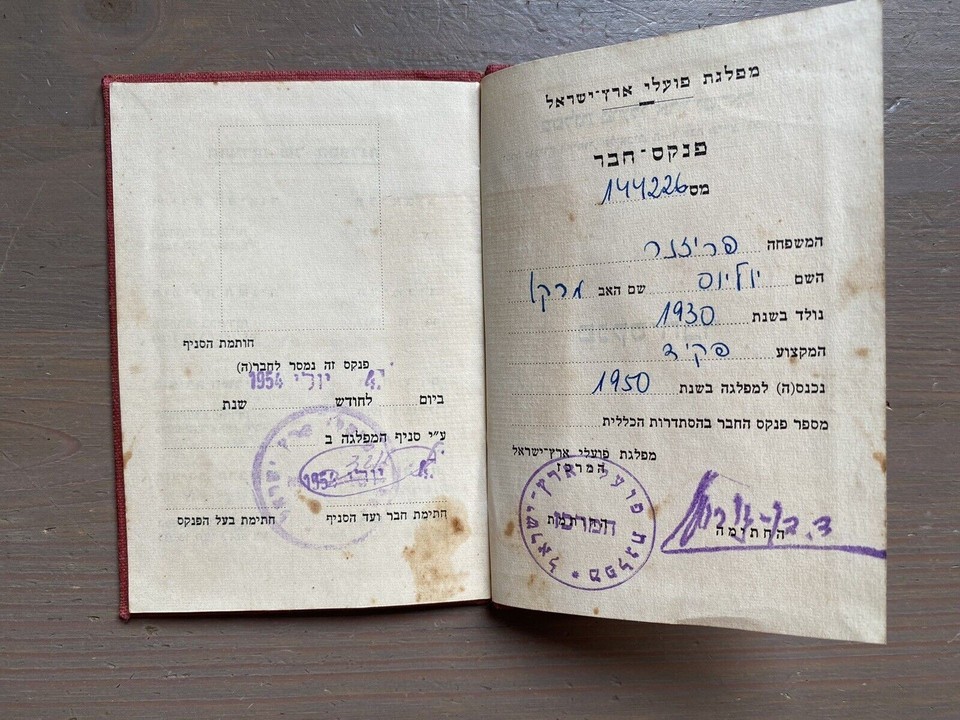 מפלגת פועלי ארץ־ישראל
פנקס־חבר
מס 144226
המשפחה פריזנר
השם יוליוס שם האב מרקו
נולד בשנת 1930
המקצוע פקיד
נכנס(ה) למפלגה בשנת 1950
מספר פנקס החבר בהסתדרות הכללית
מפלגת פועלי ארץ־ישראל
המרכז
החותמת החתימה
מפלגת פועלי ארץ־ישראל
המרכז
חותמת הסניף
פנקס זה נמסר לחבר(ה)
יולי 1954
ביום לחודש שנת
ע״י סניף המפלגה ב
יולי 1954
חתימת חבר ועד הסניף חתימת בעל הפנקס